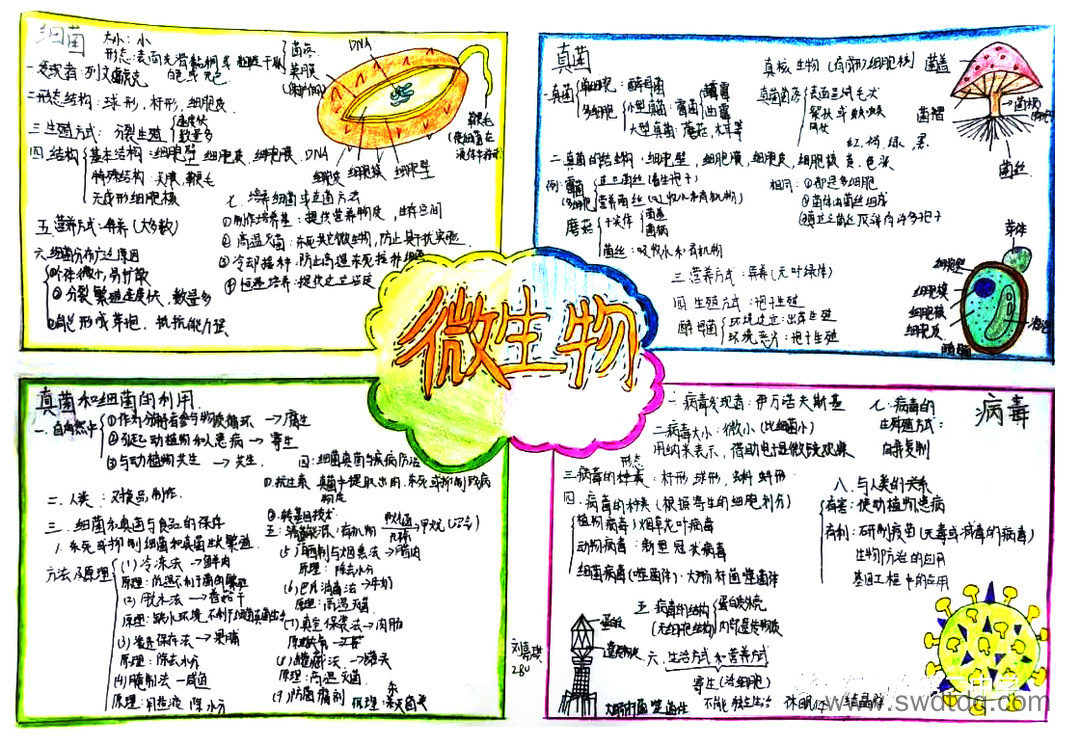 微生物
细菌
大小：小
菌落
荚膜
DNA
鞭毛
一发现者：列文虎克
二形态结构：球形，杆形，
三生殖方式：分裂生殖
速度快
数量多
四、结构
基本结构：细胞壁，细胞质，细胞膜，DNA
特殊结构：荚膜，鞭毛
无成形细胞核
细胞质 细胞膜 细胞壁
五营养方式：异养（大多数）
六细菌分布广泛原因
①个体微小，易扩散
②分裂繁殖速度快，数量多
③能形成芽孢，抵抗能力强
七 培养细菌或真菌方法
①制作培养基：提供营养物质，生存空间
②高温灭菌：杀死其它微生物，防止其干扰实验
③冷却接种：防止高温杀死
④恒温培养：提供适宜温度
真菌
真核生物（有成形细胞核）
菌盖
菌褶
菌柄
菌丝
一真菌
单细胞：酵母菌
多细胞
小型真菌：霉菌
青霉
曲霉
大型真菌：蘑菇，木耳等
真菌菌落
表面呈绒毛状
红、褐、绿、黑
二真菌的结构：细胞壁，细胞膜，细胞质，细胞核
例：霉菌
多细胞
直立菌丝
营养菌丝
相同：①都是多细胞
②菌体由菌丝组成
蘑菇
子实体
菌盖
菌柄
菌丝：吸收水和有机物
三营养方式：异养（无叶绿体）
四 生殖方式：孢子生殖
酵母菌
环境适宜：出芽生殖
环境恶劣：孢子生殖
芽体
细胞壁
细胞膜
细胞核
细胞质
液泡
真菌和细菌的利用
一自然界中
①作为分解者参与物质循环 → 腐生
②引起动植物和人患病 → 寄生
③与动植物共生 → 共生.
二、人类：对食品制作.
三 细菌和真菌与食品的保存
1.杀死或抑制细菌和真菌生长繁殖
方法及原理
(1)冷冻法→鲜肉
(2)脱水法→香菇干
(3)渗透保存法→果脯
原理：除去水分
(4)腌制法－咸鱼
四：细菌真菌与疾病防治
①抗生素：真菌中提取出用，杀死或抑制致病
②转基因技术
五：清洁能源：有机物
甲烷（沼气）
(5)晒制与烟熏法→腊肉
原理：除去水分
(6)巴氏消毒法→牛奶
原理：高温灭菌.
(7)真空保装法→肉肠
(8)罐藏法→罐头
原理：高温灭菌.
(9)防腐剂
病毒
一 病毒发现者：伊万诺夫斯基
二病毒大小：微小（比细菌小）
用纳米表示，借助电子显微镜观察
形态
三病毒的种类：杆形，球形，蝌蚪形
四. 病毒的种类（根据寄生的细胞划分）
植物病毒：烟草花叶病毒
动物病毒：新型冠状病毒
细菌病毒（噬菌体）：大肠杆菌噬菌体
五 病毒的结构
（无细胞结构）
蛋白质外壳
内部遗传物质
蛋白质
遗传物质
大肠杆菌噬菌体
六、生活方式和营养方式
寄生（活细胞）
不能独立生活 休眠体 结晶体
七. 病毒的
生殖方式：
自我复制
八、与人类的关系
有害：使动植物患病
有利：研制疫苗（无毒或减毒的病毒）
生物防治的应用
基因工程中的应用
www.swdtdq.com